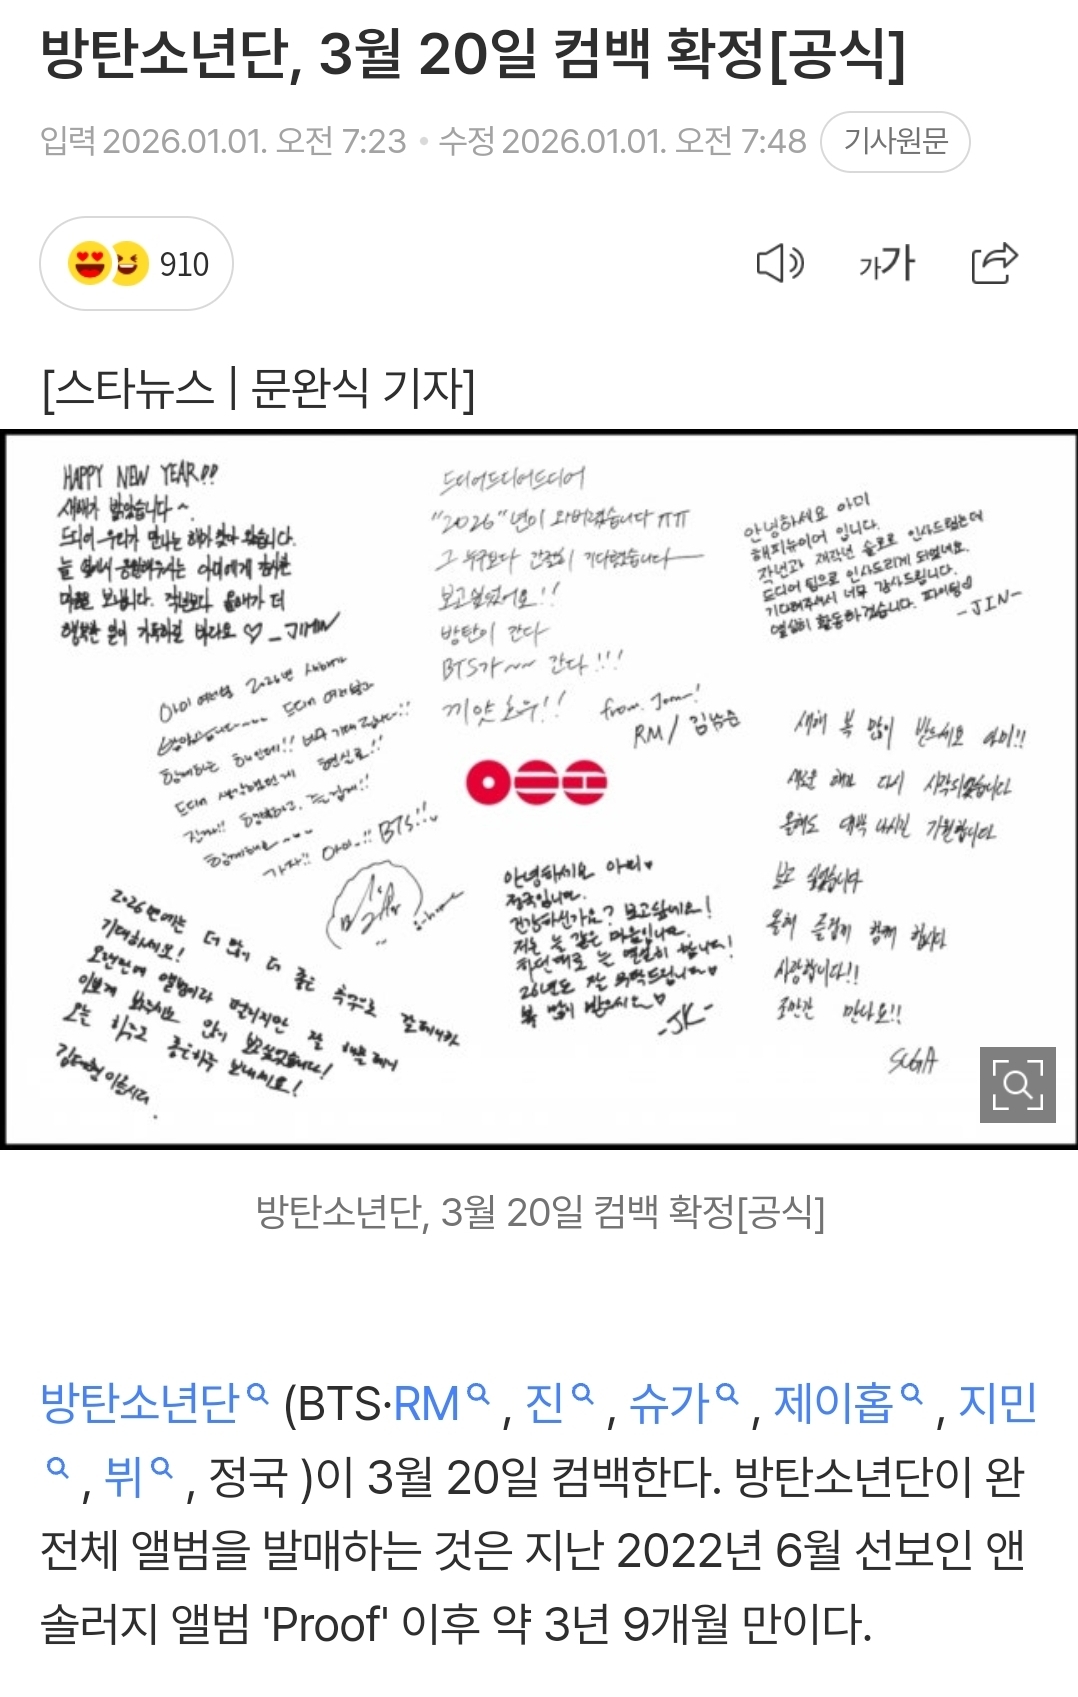 방탄소년단, 3월 20일 컴백 확정[공식]
입력 2026.01.01. 오전 7:23 • 수정 2026.01.01. 오전 7:48 기사원문
910
가가
[스타뉴스 | 문완식 기자]
HAPPY NEW YEAR!!
새해가 밝았습니다~.
드디어 우리가 만나는 해가 찾아 왔습니다.
늘 옆에서 응원해주시는 아미에게 감사한
마음을 보냅니다. 작년보다 올해가 더
행복한 일이 가득하길 바라요 ♡ _JIMIN
드디어드디어드디어
"2026"년이 와버렸습니다 ㅠㅠ
그 누구보다 간절히 기다렸습니다
보고싶었어요!!
방탄이 간다
BTS가~~ 간다!!!
끼얏호우!!
from. Joon!
RM / 김남준
안녕하세요 아미
해피뉴이어 입니다.
작년과 재작년 솔로로 인사드렸는데
드디어 팀으로 인사드리게 되었네요.
기다려주셔서 너무 감사드립니다.
열심히 활동하겠습니다. 파이팅♡
-JIN-
아미 여러분 2026년 새해가
밝았습니다~~~ 드디어 여러분과
함께하는 해인데!! 너무 기대됩니다!!
드디어 생각했던게 현실로!!
진짜!! 행복하고, 즐겁게!!
함께해요~~~
가자!! 아미..!! BTS!!
새해 복 많이 받으세요 아미!!
새로운 해가 다시 시작되었습니다
올해도 대박 나시길 기원합니다
보고 싶었습니다
올해 즐겁게 함께 합시다
사랑합니다!!
조만간 만나요!!
SUGA
안녕하세요 아미♥
정국입니다.
건강하신가요? 보고싶네요!
저는 늘 같은 마음입니다.
하던대로 늘 열심히 합니다!
26년도 잘 부탁드립니다♥
복 많이 받으시오♡
-JK-
2026년에는 더 많이 더 좋은 추억으로 갈테니까
기대하세요!
오랜만에 앨범이라 떨리지만 잘 해볼테니
이쁘게 봐주시오 많이 보고싶었습니다!
오늘 하루도 좋은하루 보내세요!
김태형 이올시다.
방탄소년단, 3월 20일 컴백 확정[공식]
방탄소년단 (BTS·RM , 진 , 슈가 , 제이홉 , 지민
, 뷔 , 정국 )이 3월 20일 컴백한다. 방탄소년단이 완
전체 앨범을 발매하는 것은 지난 2022년 6월 선보인 앤
솔러지 앨범 'Proof' 이후 약 3년 9개월 만이다.